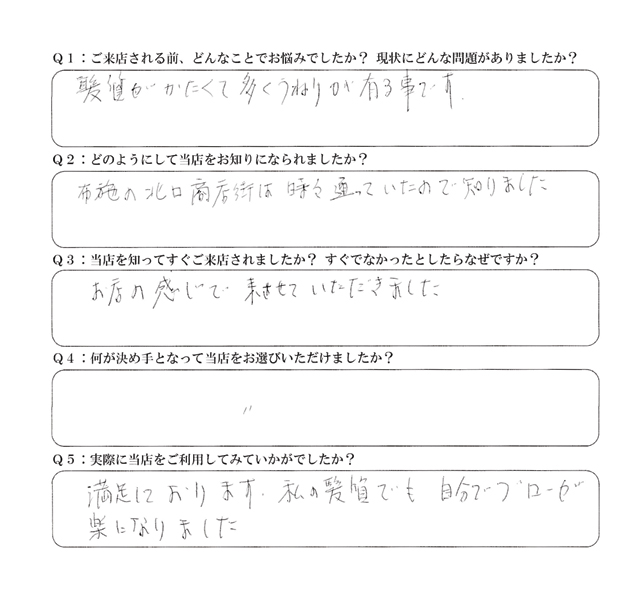 Q1：ご来店される前、どんなことでお悩みでしたか？ 現状にどんな問題がありましたか？
髪質がかたくて多くうねりが有る事です.
Q2：どのようにして当店をお知りになられましたか？
布施の北口商店街は時々通っていたので知りました
Q3：当店を知ってすぐご来店されましたか？ すぐでなかったとしたらなぜですか？
お店の感じで来させていただきました
Q4：何が決め手となって当店をお選びいただけましたか？
〃
Q5：実際に当店をご利用してみていかがでしたか？
満足しております. 私の髪質でも 自分でブローが
楽になりました